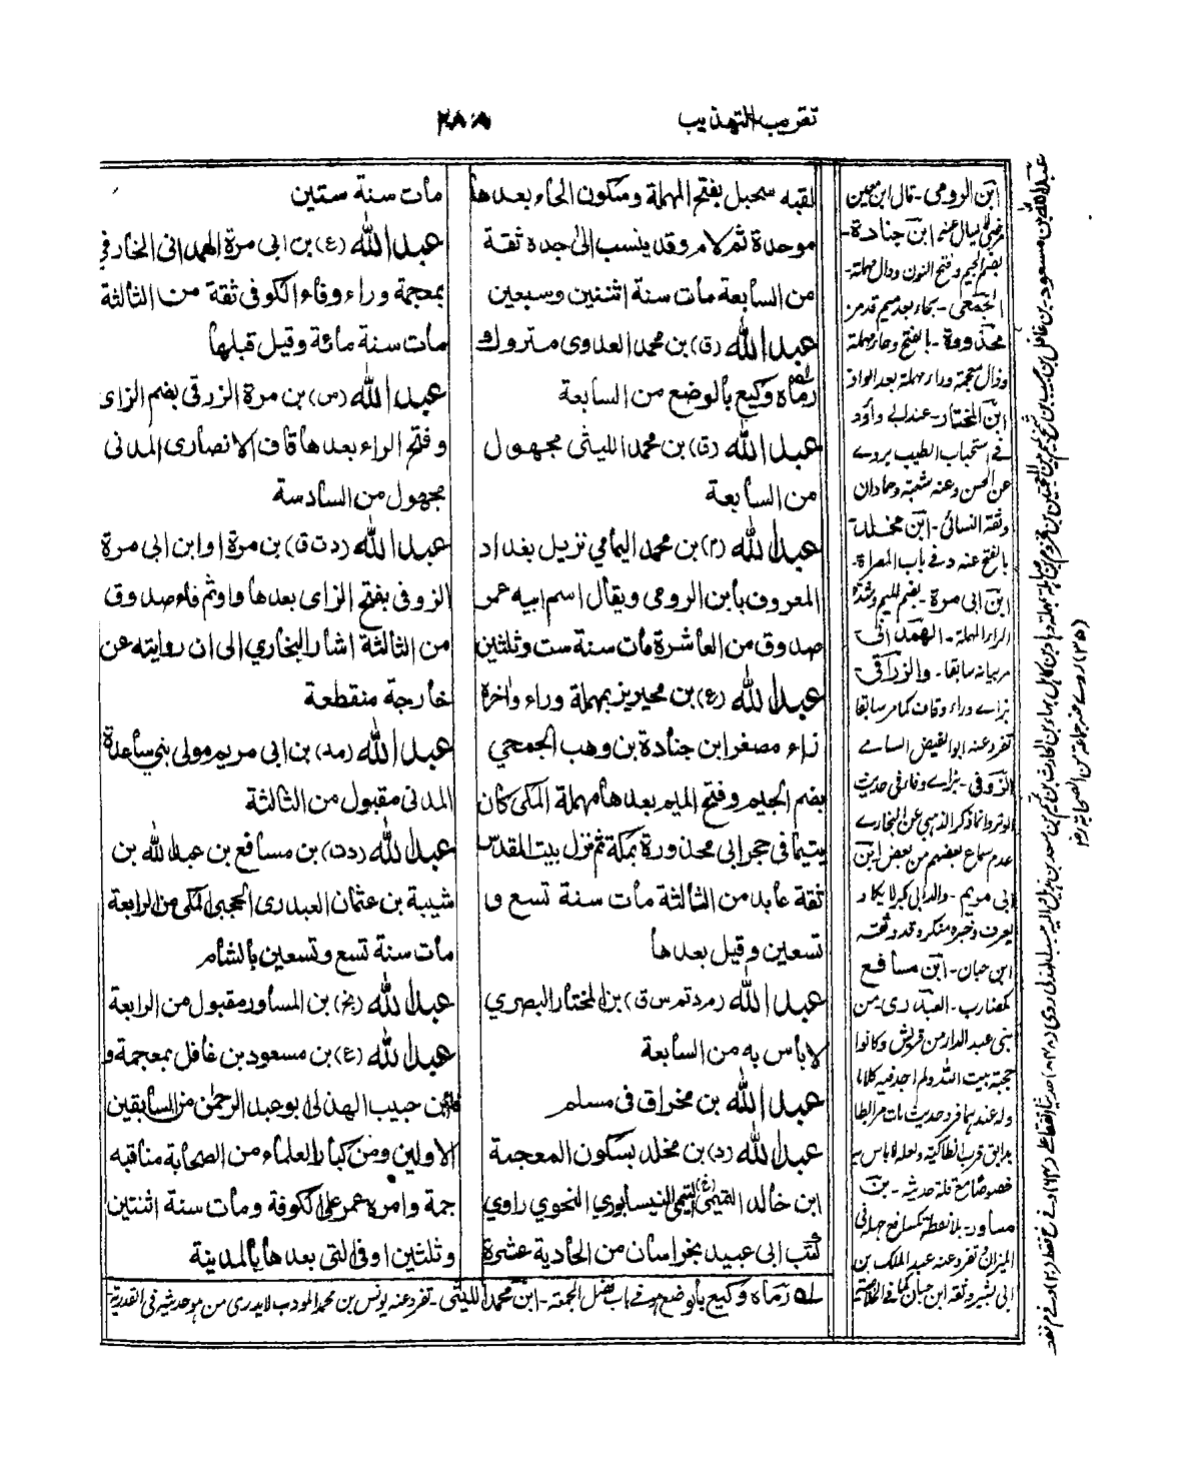 تقريب التهذيب
لقبه سحبل بفتح المهملة وسكون الحاء بعدها
موحدة ثم لام وقد ينسب الى جده ثقة
من السابعة مات سنة اثنتين وسبعين
عبد الله (ق) بن محمد العدوى متروك
رماه وكيع بالوضع من السابعة
عبد الله (ق) بن محمد الليثى مجهول
من السابعة
عبد الله (م) بن محمد اليمامي نزيل بغداد
المعروف بابن الرومى ويقال اسم ابيه عمر
صدوق من العاشرة مات سنة ست وثلثين
عبد الله (ع) بن محيريز بمهملة وراء واخره
زاء مصغر ابن جنادة بن وهب الجمحي
بضم الجيم وفتح الميم بعدها مهملة المكى كان
يتيما فى حجر ابى محذورة بمكة ثم نزل بيت المقدس
ثقة عابد من الثالثة مات سنة تسع و
تسعين وقيل بعدها
عبد الله (مردتمسق) بن المختار البصري
لا بأس به من السابعة
عبد الله بن مخراق فى مسلم
عبد الله (د) بن مخلد بسكون المعجمة
ابن خالد التميمى النيسابوري النحوي راوي
كتب ابى عبيد بخراسان من الحادية عشرة
مات سنة ستين
عبد الله (ع) بن ابى مرة الهمدانى الخارفى
بمعجمة وراء وفاء الكوفى ثقة من الثالثة
مات سنة مائة وقيل قبلها
عبد الله (س) بن مرة الزرقى بضم الزاى
وفتح الراء بعدها قاف الانصارى المدنى
مجهول من السادسة
عبد الله (دتق) بن مرة او ابن ابى مرة
الزوفى بفتح الزاى بعدها واو ثم فاء صدوق
من الثالثة اشار البخاري الى ان روايته عن
خارجة منقطعة
عبد الله (مد) بن ابى مريم مولى بنى ساعدة
المدنى مقبول من الثالثة
عبد الله (دت) بن مسافع بن عبد الله بن
شيبة بن عثمان العبدرى الحجبى المكى من الرابعة
مات سنة تسع وتسعين بالشام
عبد الله (بخ) بن المساور مقبول من الرابعة
عبد الله (ع) بن مسعود بن غافل بمعجمة و
فاء بن حبيب الهذلى ابو عبد الرحمٰن من السابقين
الاولين ومن كبار العلماء من الصحابة مناقبه
جمة وامره عمر على الكوفة ومات سنة اثنتين
وثلثين او فى التى بعدها بالمدينة
ابن الرومى - قال ابن معين
ابن جنادة -
بضم الجيم وفتح النون ودال مهملة -
الجمحى - بحاء بعد ميم قد مر
محذورة - بالفتح وحاء مهملة
وذال معجمة وراء مهملة بعد الواو
ابن المختار - عند ابى داؤد
فى استحباب الطيب يروى
عن الحسن وعنه شعبة وحمادان
وثقه النسائى - ابن مخلد
بالفتح عنه د فى باب المصراة -
ابن ابى مرة - بضم الميم وشدة
الراء المهملة - الهمدانى -
مر بيانه سابقا - والزرقى
بزاى وراء وقاف كما مر سابقا
تفرد عنه ابو الفيض الشامى
الزوفى - بزاى وفاء فى حديث
الوتر وانما ذكر الذهبى عن البخارى
عدم سماع بعضهم من بعض ابن
ابى مريم - والد ابى بكر لا يكاد
يعرف وخبره منكر وقد وثقه
ابن حبان - ابن مسافع
كمضارب - العبدرى - من
بنى عبد الدار من قريش وكانوا
حجبة بيت الله ولم اجد فيه كلاما
وله عندهما فرد حديث
خصوصا مع قلة حديثه - بن
مساور
الميزان تفرد عنه عبد الملك بن
ابى بشير وثقه ابن حبان كما فى الخلاصة
له رماه وكيع بالوضع فى باب فضل الجمعة - ابن محمد الليثى - تفرد عنه يونس بن محمد المودب لا يدرى من هو حديثه فى القدرية -
عبد الله بن مسعود - بن غافل بن حبيب بن شمخ